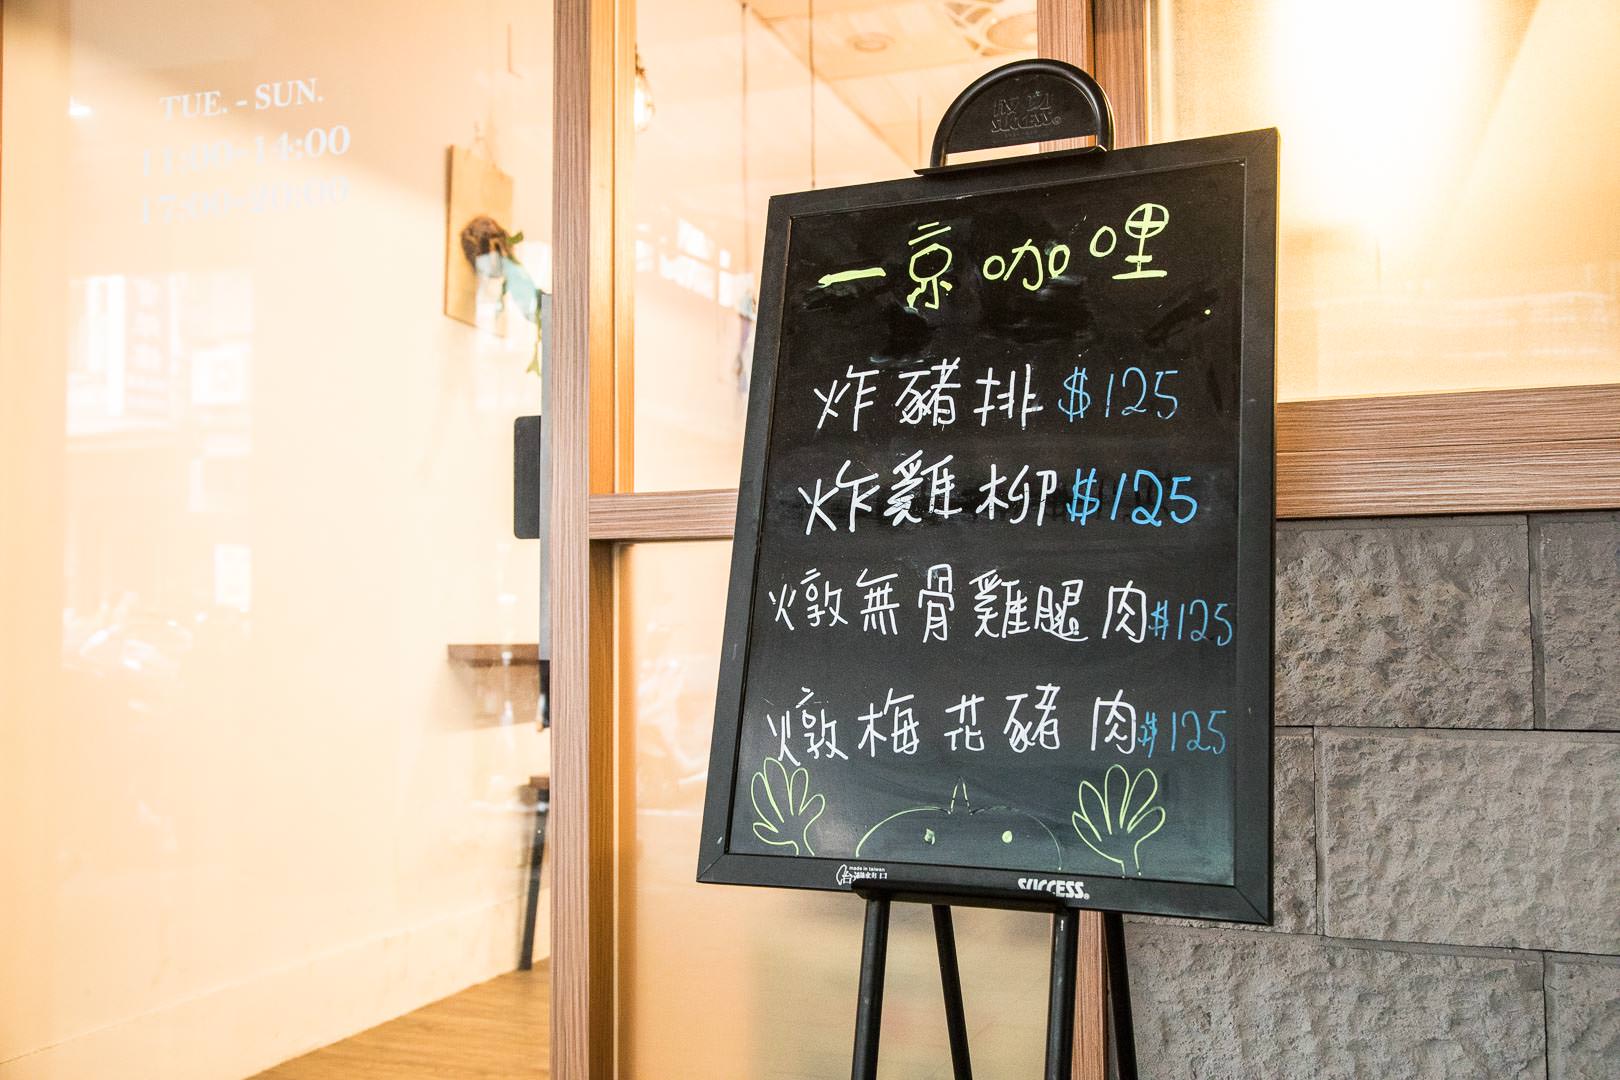 TUE. - SUN.
11:00-14:00
17:00-20:00
SUCCESS
一京咖哩
炸豬排 $125
炸雞柳 $125
燉無骨雞腿肉 $125
燉梅花豬肉 $125
made in taiwan
SUCCESS